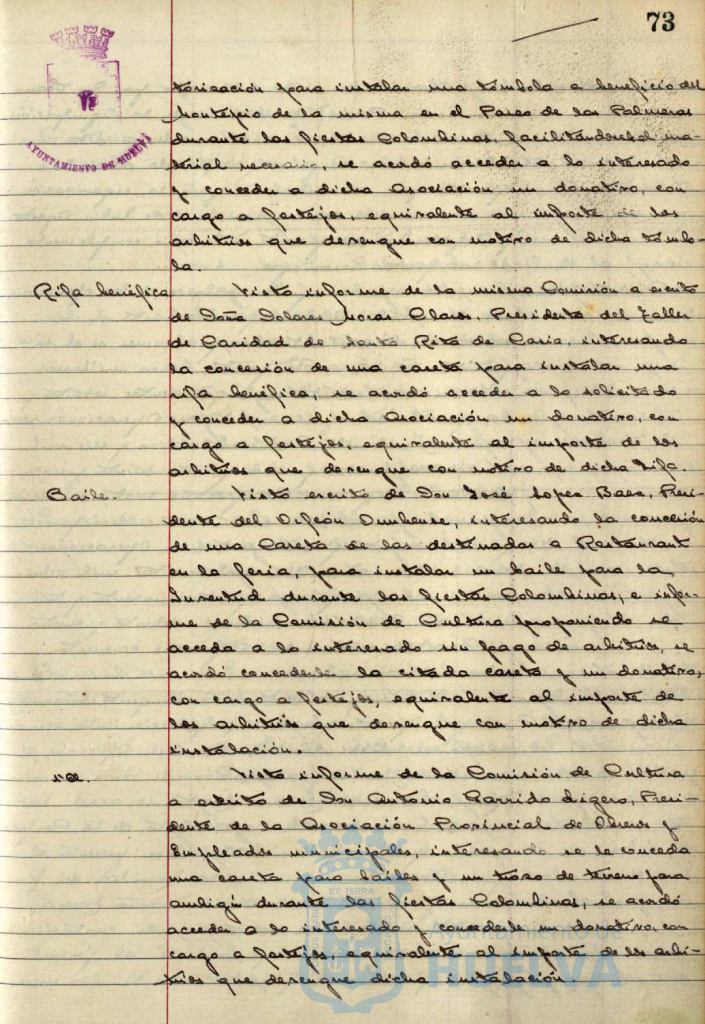 73
AYUNTAMIENTO DE HUELVA
torización para instalar una tómbola a beneficio del
Montepio de la misma en el Paseo de las Palmeras
durante las fiestas Colombinas, facilitándosele el ma-
terial necesario, se acordó acceder a lo interesado
y conceder a dicha Asociación un donativo, con
cargo a festejos, equivalente al importe de los
arbitrios que devengue con motivo de dicha tómbo-
la.
Rifa benéfica Visto informe de la misma Comisión a escrito
de Doña Dolores Claros, Presidenta del Taller
de Caridad de Santa Rita de Casia, interesando
la concesión de una caseta para instalar una
rifa benéfica, se acordó acceder a lo solicitado
y conceder a dicha Asociación un donativo, con
cargo a festejos, equivalente al importe de los
arbitrios que devengue con motivo de dicha rifa.
Baile. Visto escrito de Don José Lopez Baez, Presi-
dente del Orfeón Onubense, interesando la concesión
de una Caseta de las destinadas a Restaurant
en la feria, para instalar un baile para la
Juventud durante las fiestas Colombinas, e infor-
me de la Comisión de Cultura proponiendo se
acceda a lo interesado sin pago de arbitrios, se
acordó concederle la citada caseta y un donativo,
con cargo a festejos, equivalente al importe de
los arbitrios que devengue con motivo de dicha
instalación.
id. Visto informe de la Comisión de Cultura
a escrito de Don Antonio Garrido Ligero, Presi-
dente de la Asociación Provincial de Obreros y
Empleados municipales, interesando se le conceda
una caseta para bailes y un trozo de terreno para
ambigú durante las fiestas Colombinas, se acordó
acceder a lo interesado y concederle un donativo, con
cargo a festejos, equivalente al importe de los arbi-
trios que devengue dicha instalación.
HUELVA